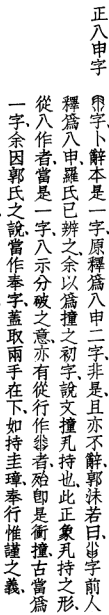 正八申字
字卜辭本是一字原釋爲八申二字非是且亦不辭郭沫若曰字前人
釋爲八申羅氏已辨之余以爲撞之初字說文撞丮持也此正象丮持之形
從八作者當是一字八示分破之意亦有從行作者殆卽是衝撞古當爲
一字余因郭氏之說當作奉字蓋取兩手在下如持圭璋奉行惟謹之義